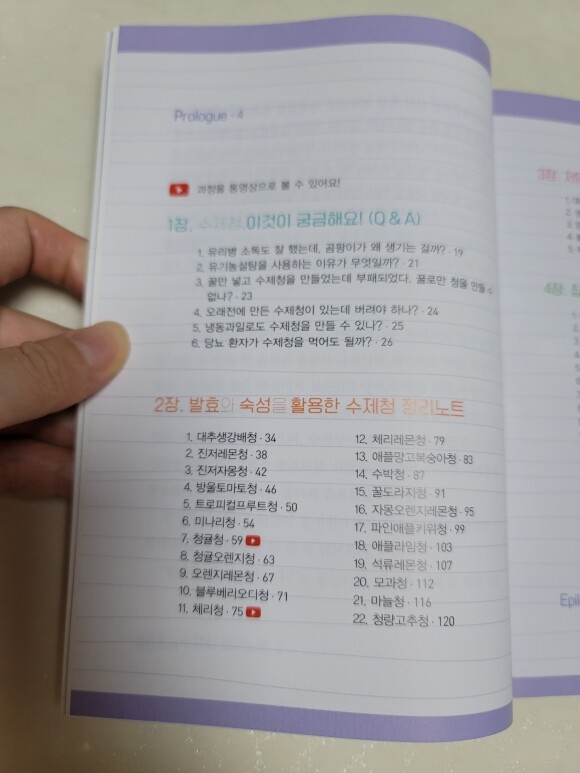 Prologue · 4
과정을 동영상으로 볼 수 있어요!
1장. 수제청, 이것이 궁금해요! (Q & A)
1. 유리병 소독도 잘 했는데, 곰팡이가 왜 생기는 걸까? · 19
2. 유기농설탕을 사용하는 이유가 무엇일까? · 21
3. 꿀만 넣고 수제청을 만들었는데 부패되었다. 꿀로만 청을 만들 수
없나? · 23
4. 오래전에 만든 수제청이 있는데 버려야 하나? · 24
5. 냉동과일로도 수제청을 만들 수 있나? · 25
6. 당뇨 환자가 수제청을 먹어도 될까? · 26
2장. 발효와 숙성을 활용한 수제청 정리노트
1. 대추생강배청 · 34
2. 진저레몬청 · 38
3. 진저자몽청 · 42
4. 방울토마토청 · 46
5. 트로피컬프루트청 · 50
6. 미나리청 · 54
7. 청귤청 · 59
8. 청귤오렌지청 · 63
9. 오렌지레몬청 · 67
10. 블루베리오디청 · 71
11. 체리청 · 75
12. 체리레몬청 · 79
13. 애플망고복숭아청 · 83
14. 수박청 · 87
15. 꿀도라지청 · 91
16. 자몽오렌지레몬청 · 95
17. 파인애플키위청 · 99
18. 애플라임청 · 103
19. 석류레몬청 · 107
20. 모과청 · 112
21. 마늘청 · 116
22. 청량고추청 · 120
3장.
4장.